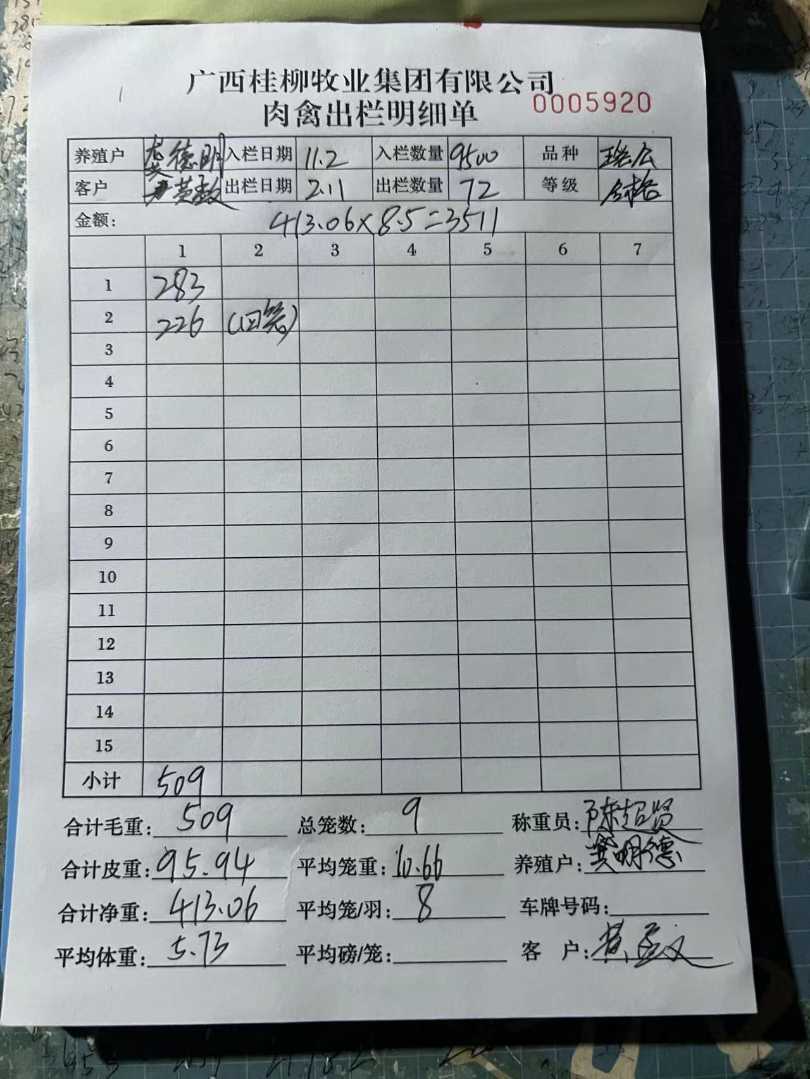 广西桂柳牧业集团有限公司
肉禽出栏明细单 0005920
养殖户 龚德明 入栏日期 11.2 入栏数量 9500 品种
客户 出栏日期 2.11 出栏数量 72 等级
金额: 413.06×8.5=3511
1 2 3 4 5 6 7
1 283
2 226 (回笼)
3
4
5
6
7
8
9
10
11
12
13
14
15
小计 509
合计毛重: 509 总笼数: 9 称重员: 陈超贤
合计皮重: 95.94 平均笼重: 10.66 养殖户: 龚明德
合计净重: 413.06 平均笼/羽: 8 车牌号码:
平均体重: 5.73 平均磅/笼: 客 户: 黄